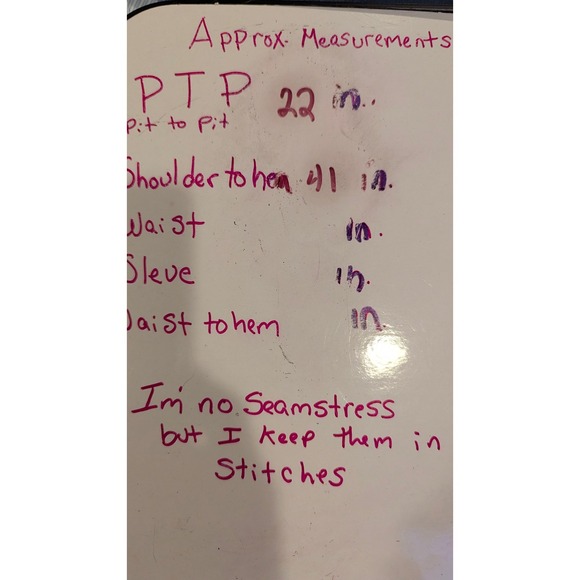 Approx. Measurements
PTP 22 in.
Pit to Pit
Shoulder to hem 41 in.
Waist in.
Sleve in.
Waist to hem in.
I'm no Seamstress
but I keep them in
Stitches